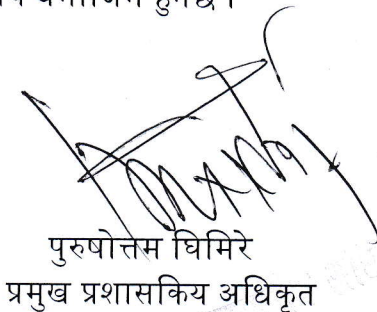 हुनेछ।
पुरुषोत्तम घिमिरे
प्रमुख प्रशासकिय अधिकृत